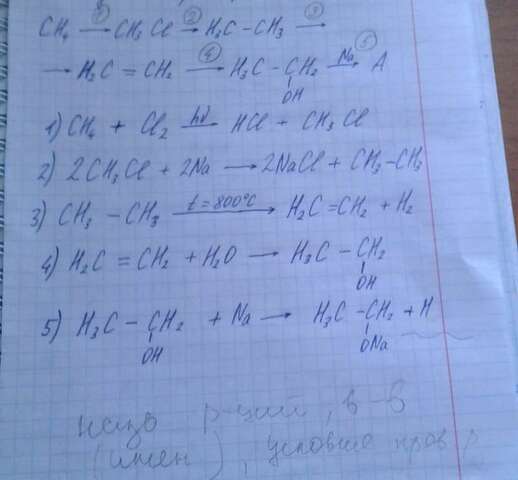 CH₄ —①→ CH₃Cl —②→ H₃C – CH₃ —③→
→ H₂C = CH₂ —④→ H₃C – CH₂ —Na ⑤→ A
OH
1) CH₄ + Cl₂ —hν→ HCl + CH₃Cl
2) 2CH₃Cl + 2Na → 2NaCl + CH₃–CH₃
3) CH₃ – CH₃ —t = 800°C→ H₂C = CH₂ + H₂
4) H₂C = CH₂ + H₂O → H₃C – CH₂
OH
5) H₃C – CH₂ + Na → H₃C – CH₂ + H
OH ONa
назв р-ций, в-в
(имен), условия пров р